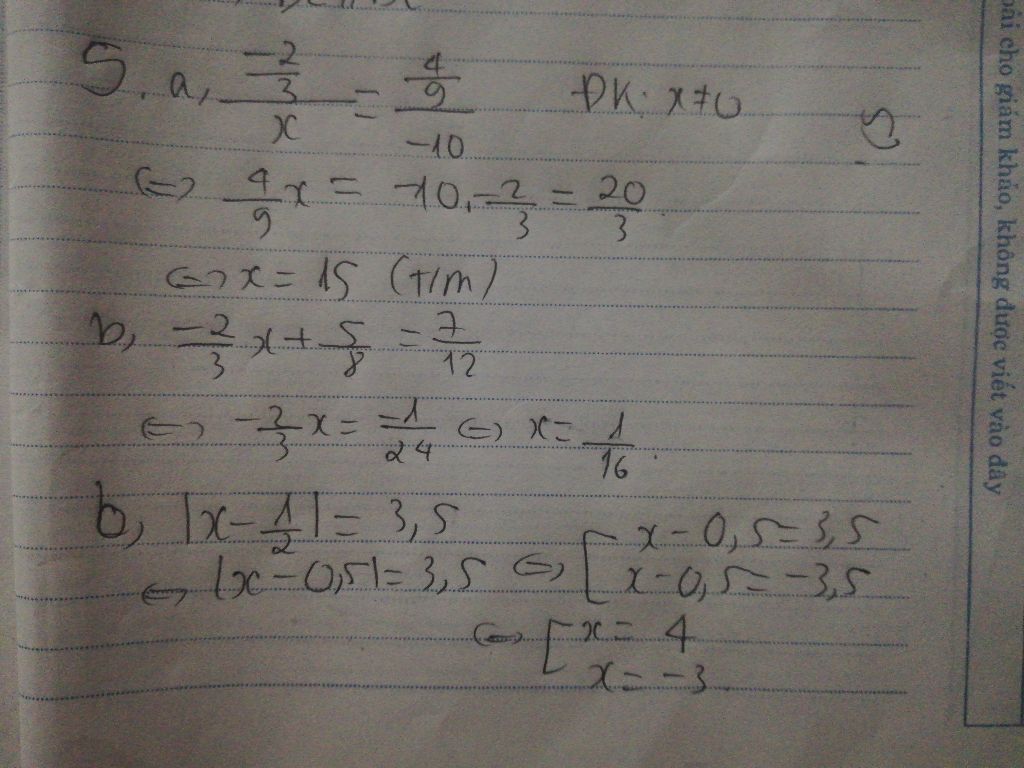 5. a, \frac{\frac{-2}{3}}{x} = \frac{\frac{4}{9}}{-10} ĐK: x ≠ 0
⇔ \frac{4}{9}x = -10.\frac{-2}{3} = \frac{20}{3}.
⇔ x = 15 (t/m)
b, \frac{-2}{3}x + \frac{5}{8} = \frac{7}{12}
⇔ -\frac{2}{3}x = \frac{-1}{24} ⇔ x = \frac{1}{16}.
b, |x - \frac{1}{2}| = 3,5
⇔ |x - 0,5| = 3,5 ⇔ [ x - 0,5 = 3,5
x - 0,5 = -3,5
⇔ [ x = 4
x = -3.
bài cho giám khảo, không được viết vào đây